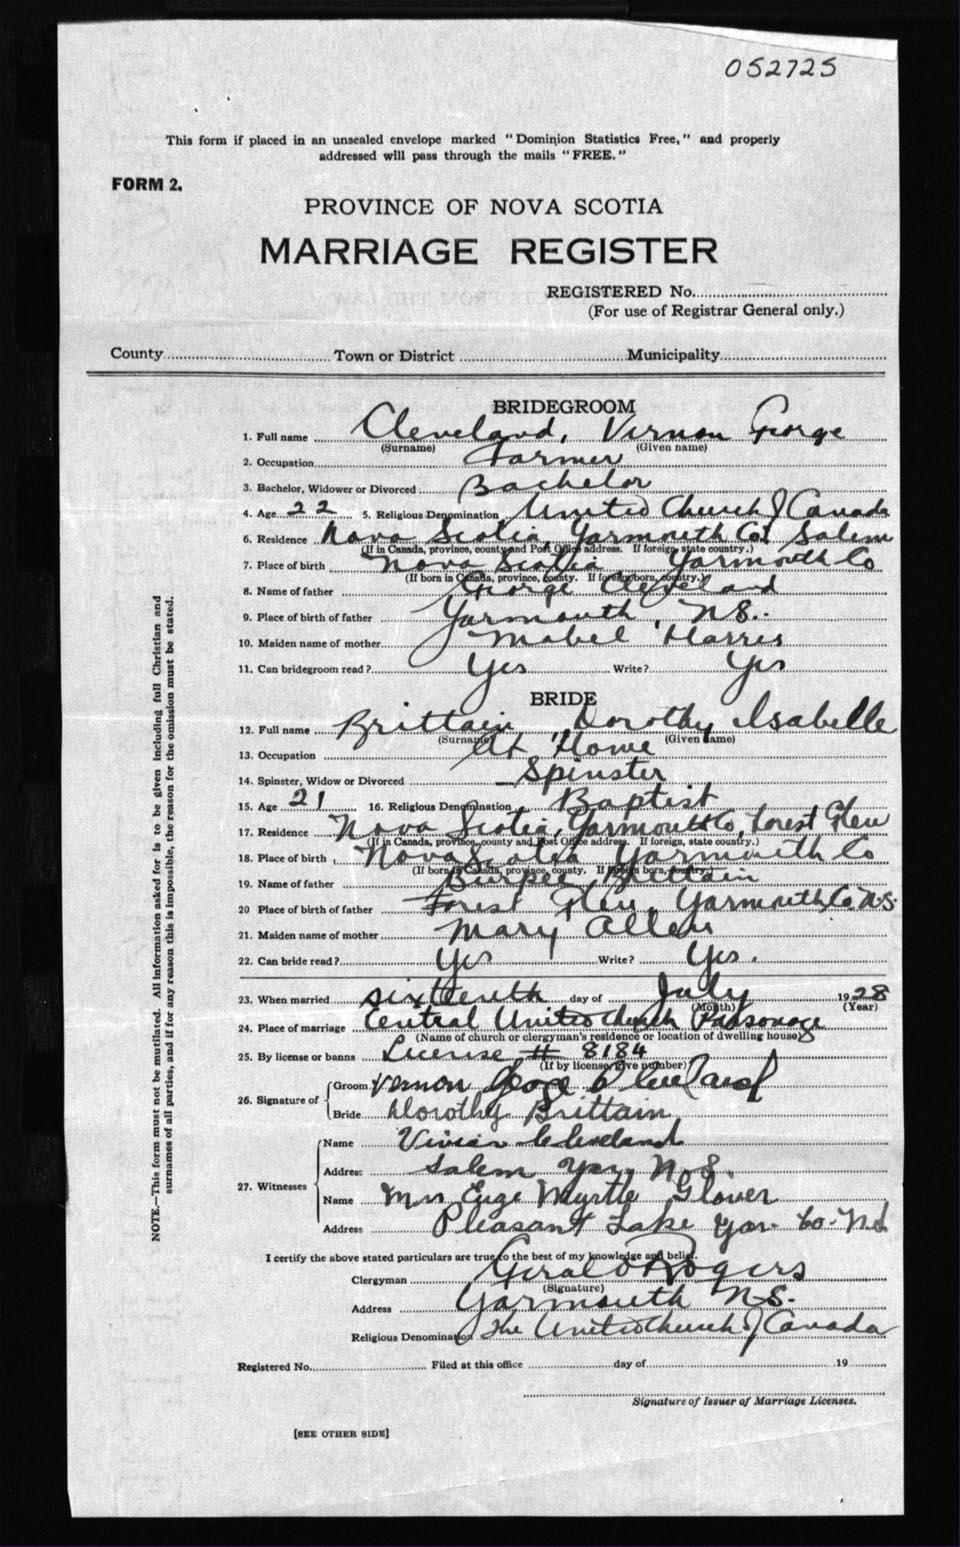 052725
This form if placed in an unsealed envelope marked "Dominion Statistics Free," and properly
addressed will pass through the mails "FREE."
FORM 2.
PROVINCE OF NOVA SCOTIA
MARRIAGE REGISTER
REGISTERED No.
(For use of Registrar General only.)
County Town or District Municipality
BRIDEGROOM
1. Full name Cleveland, Vernon George
(Surname) (Given name)
2. Occupation Farmer
3. Bachelor, Widower or Divorced Bachelor
4. Age 22 5. Religious Denomination United Church of Canada
6. Residence Nova Scotia, Yarmouth Co. Salem
(If in Canada, province, county and Post Office address. If foreign, state country.)
7. Place of birth Nova Scotia Yarmouth Co
(If born in Canada, province, county. If foreign born, country.)
8. Name of father George Cleveland
9. Place of birth of father Yarmouth, N.S.
10. Maiden name of mother Mabel Harris
11. Can bridegroom read? Yes Write? Yes
BRIDE
12. Full name Brittain Dorothy Isabelle
(Surname) (Given name)
13. Occupation At Home
14. Spinster, Widow or Divorced Spinster
15. Age 21 16. Religious Denomination Baptist
17. Residence Nova Scotia, Yarmouth Co, Forest Glen
(If in Canada, province, county and Post Office address. If foreign, state country.)
18. Place of birth Nova Scotia Yarmouth Co
(If born in Canada, province, county. If foreign born, country.)
19. Name of father Burpee Brittain
20 Place of birth of father Forest Glen, Yarmouth Co. N.S.
21. Maiden name of mother Mary Allen
22. Can bride read? Yes Write? Yes.
23. When married sixteenth day of July 1928
(Month) (Year)
24. Place of marriage Central United Church Parsonage
(Name of church or clergyman's residence or location of dwelling house)
25. By license or banns License # 8184
(If by license, give number)
26. Signature of
Groom Vernon George Cleveland
Bride Dorothy Brittain
27. Witnesses
Name Vivian Cleveland
Address Salem Yar. N.S.
Name Mrs Myrtle Glover
Address Pleasant Lake Yar. Co. N.S.
I certify the above stated particulars are true to the best of my knowledge and belief.
Clergyman Gerald Rogers
(Signature)
Address Yarmouth N.S.
Religious Denomination The United Church of Canada
Registered No. Filed at this office day of 19
Signature of Issuer of Marriage Licenses.
[SEE OTHER SIDE]
NOTE.—This form must not be mutilated. All information asked for is to be given including full Christian and
surnames of all parties, and if for any reason this is impossible, the reason for the omission must be stated.